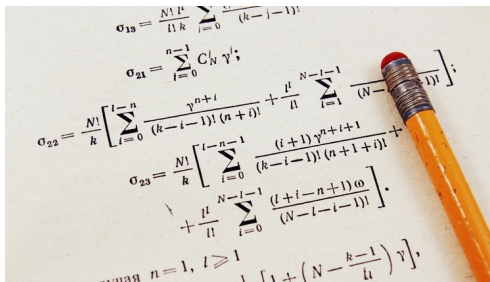 σ₁₃ = N! lˡ / l! k ∑ i=0 (k-i-1)!
σ₂₁ = ∑ i=0 n-1 Cᵢ_N γⁱ;
σ₂₂ = N!/k [ ∑ i=0 l-n γⁿ⁺ⁱ / (k-i-1)! (n+i)! + lˡ/l! ∑ i=1 N-l-1 (N- -1)! ] ;
σ₂₃ = N!/k [ ∑ i=0 l-n-1 (i+1) γⁿ⁺ⁱ⁺¹ / (k-i-1)! (n+1+i)! +
+ lˡ/l! ∑ i=0 N-l-1 (l+i-n+1) ω / (N-l-i-1)! ] .
n=1, l⩾1
[ 1 + ( N - k-1 / lμ ) γ ] ,